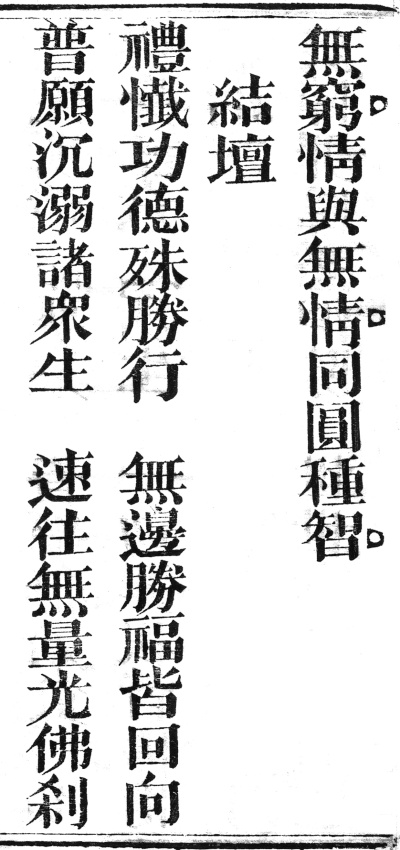 無窮情與無情同圓種智
結壇
禮懺功德殊勝行　無邊勝福皆回向
普願沉溺諸衆生　速往無量光佛剎